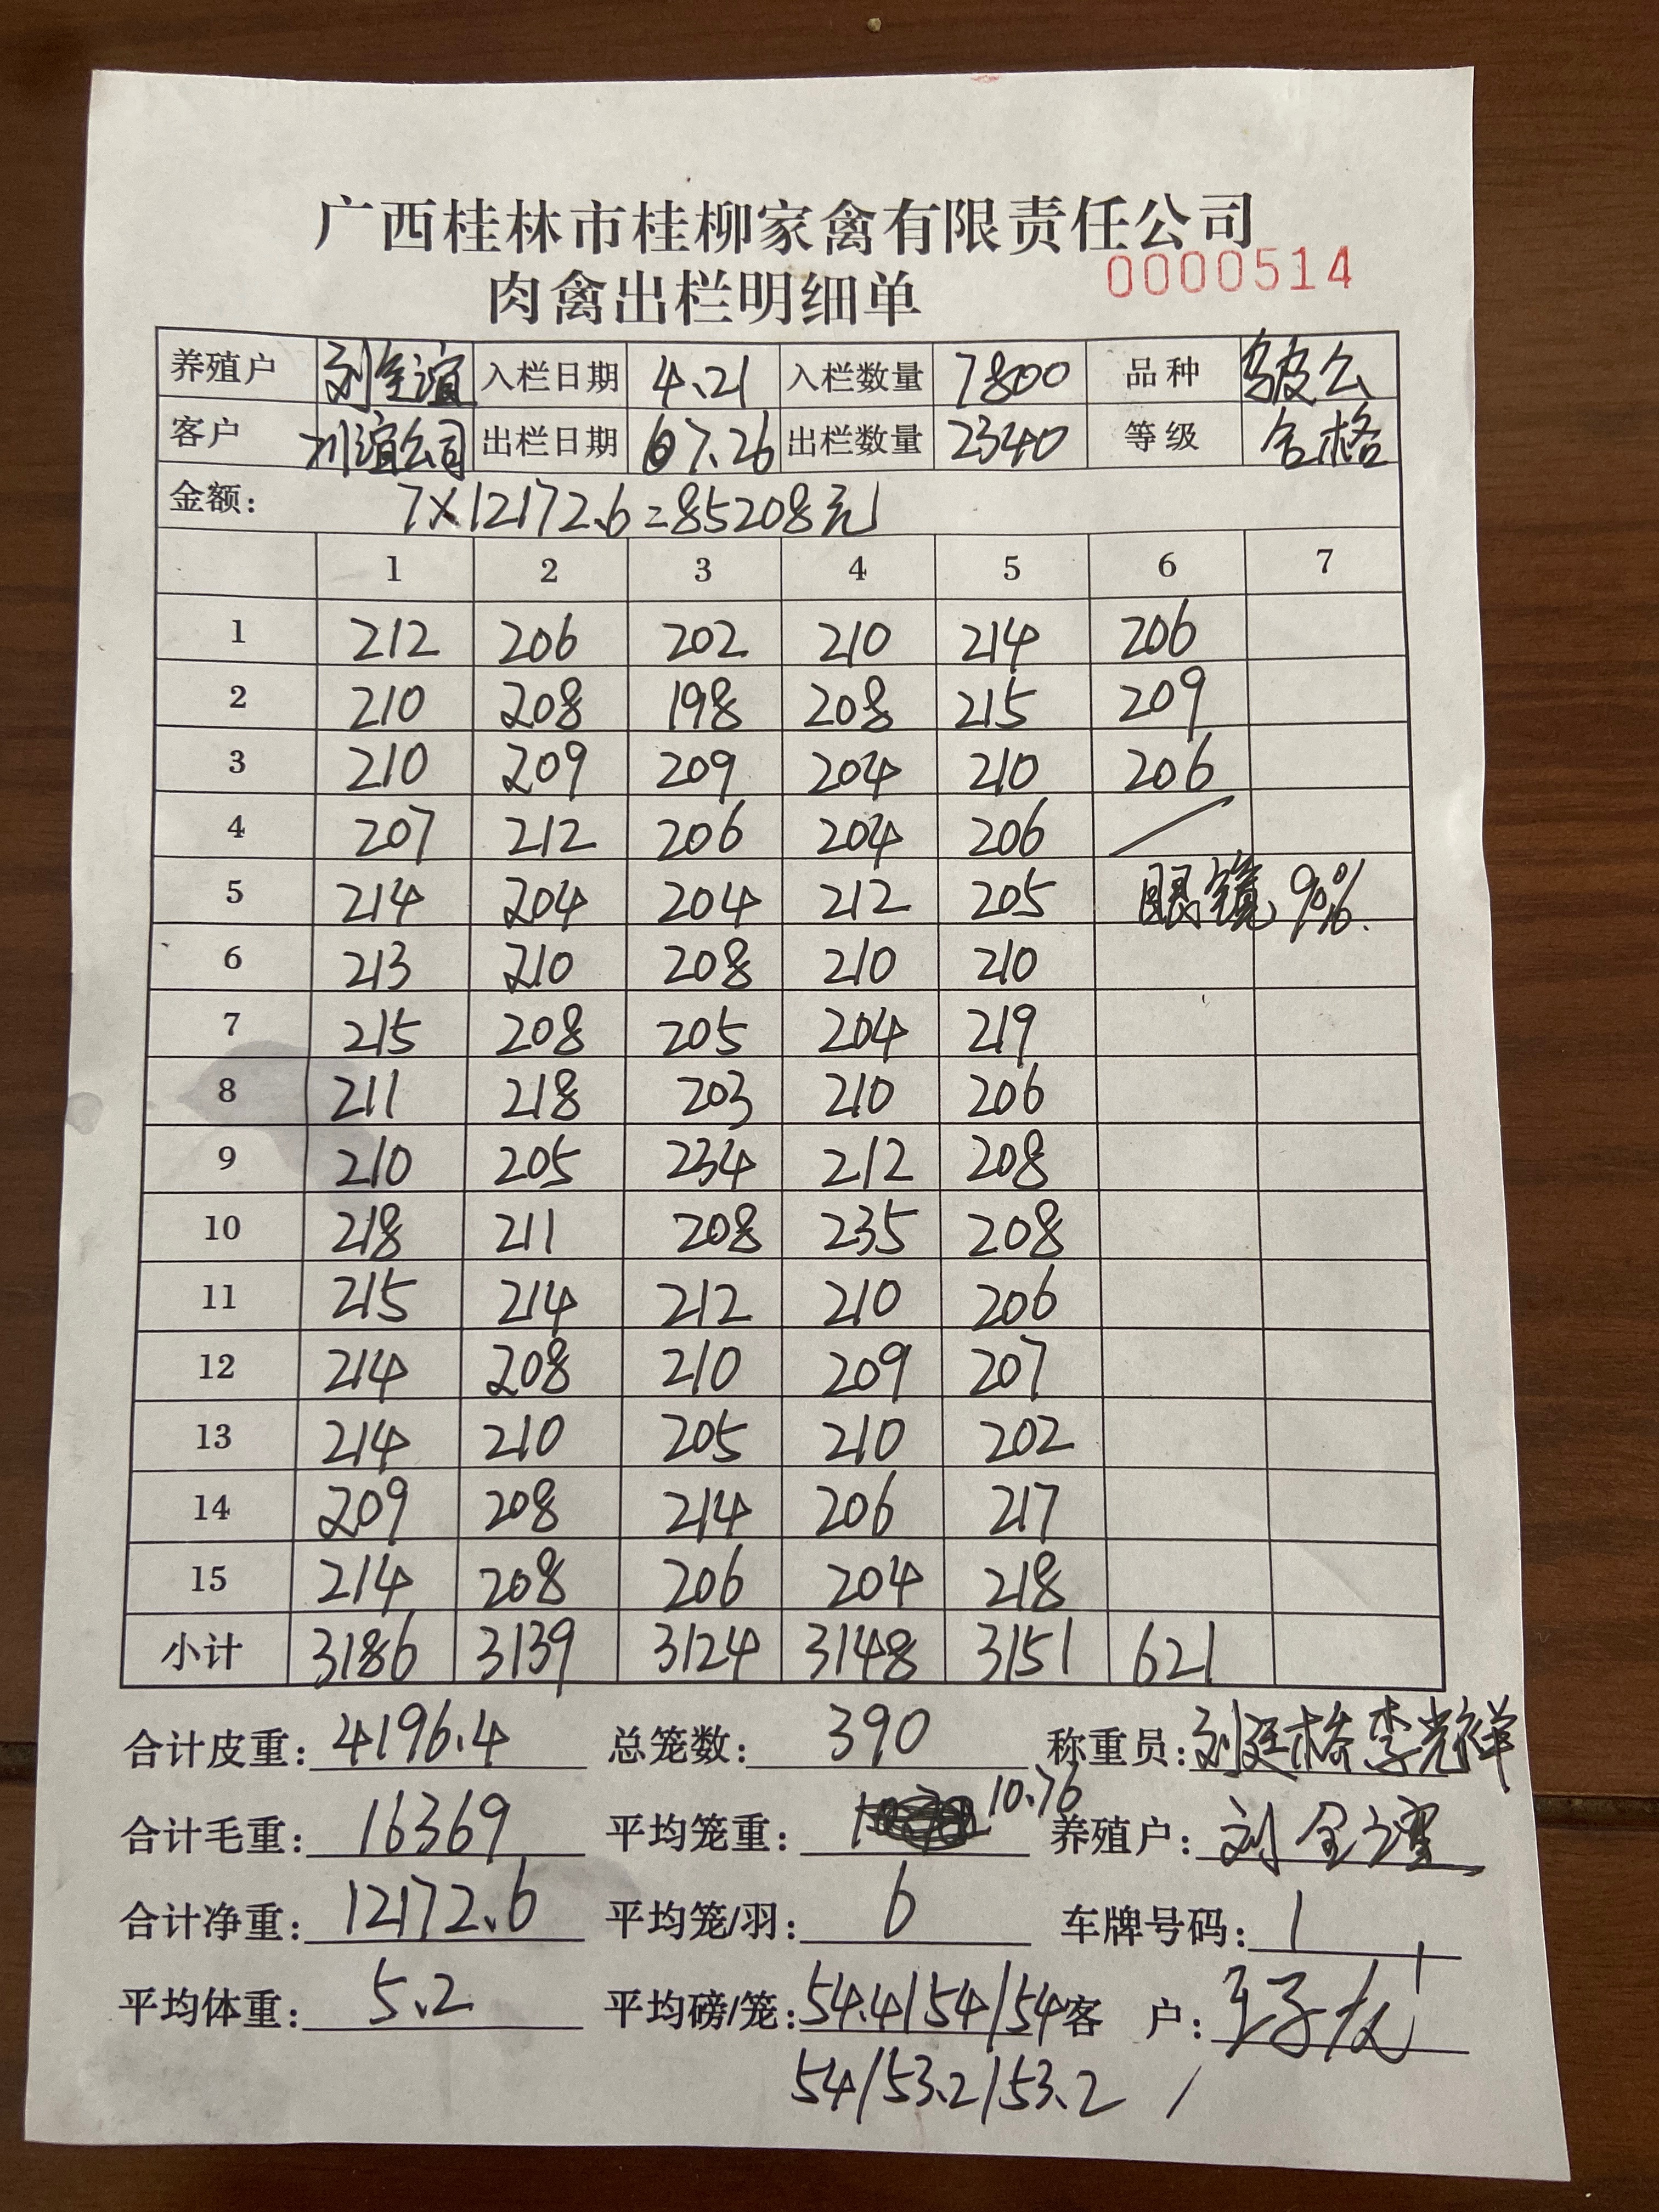 广西桂林市桂柳家禽有限责任公司
肉禽出栏明细单 0000514
养殖户 刘全谊 入栏日期 4.21 入栏数量 7800 品种 皮公
客户 川谊公司 出栏日期 7.26 出栏数量 2340 等级 合格
金额: 7×12172.6=85208元
1 2 3 4 5 6 7
1 212 206 202 210 214 206
2 210 208 198 208 215 209
3 210 209 209 204 210 206
4 207 212 206 204 206 /
5 214 204 204 212 205 眼镜90%.
6 213 210 208 210 210
7 215 208 205 204 219
8 211 218 203 210 206
9 210 205 234 212 208
10 218 211 208 235 208
11 215 214 212 210 206
12 214 208 210 209 207
13 214 210 205 210 202
14 209 208 214 206 217
15 214 208 206 204 218
小计 3186 3139 3124 3148 3151 621
合计皮重: 4196.4 总笼数: 390 称重员: 刘廷格 李光祥
合计毛重: 16369 平均笼重: 10.76 养殖户: 刘全谊
合计净重: 12172.6 平均笼/羽: 6 车牌号码: 1
平均体重: 5.2 平均磅/笼: 54.4/54/54 客 户:
54/53.2/53.2 /